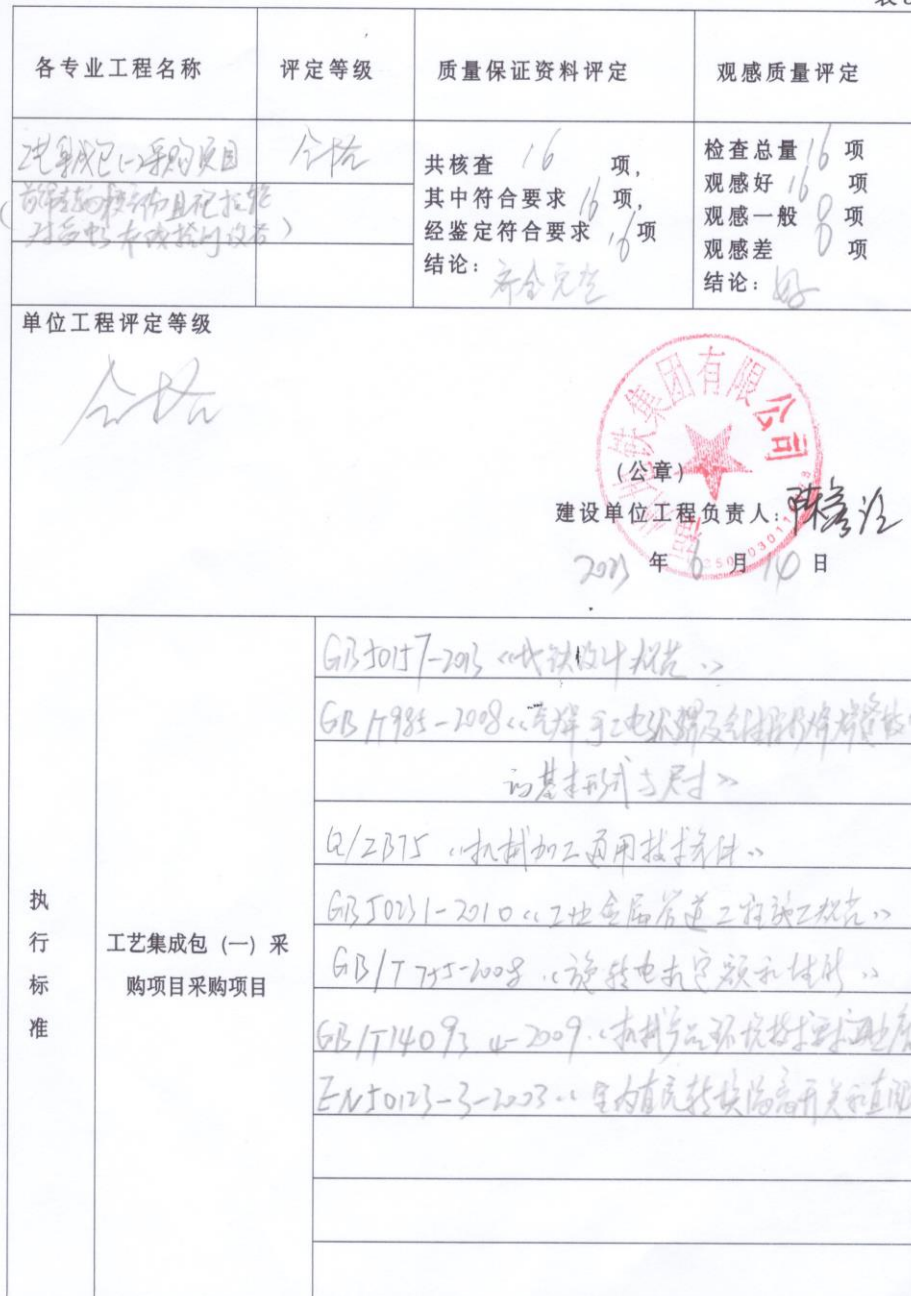 各专业工程名称
评定等级
质量保证资料评定
观感质量评定
工艺集成包(一)采购项目
合格
共核查 16 项,
其中符合要求 16 项,
经鉴定符合要求 16 项
结论: 齐全完整
检查总量 16 项
观感好 16 项
观感一般 0 项
观感差 0 项
结论: 好
单位工程评定等级
合格
地铁集团有限公司
(公章)
建设单位工程负责人:
2023 年 6 月 10 日
执行标准
工艺集成包(一)采
购项目采购项目
GB50157-2013《地铁设计规范》
GB/T985-2008《气焊手工电弧焊及气体保护焊焊缝坡口
的基本形式与尺寸》
Q/ZB75《机械加工通用技术条件》
GB50231-2010《工业金属管道工程施工规范》
GB/T755-2008《旋转电机定额和性能》
GB/T14093.4-2009《机械产品环境技术要求
EN50123-3-2003《室内直流转换隔离开关和直流